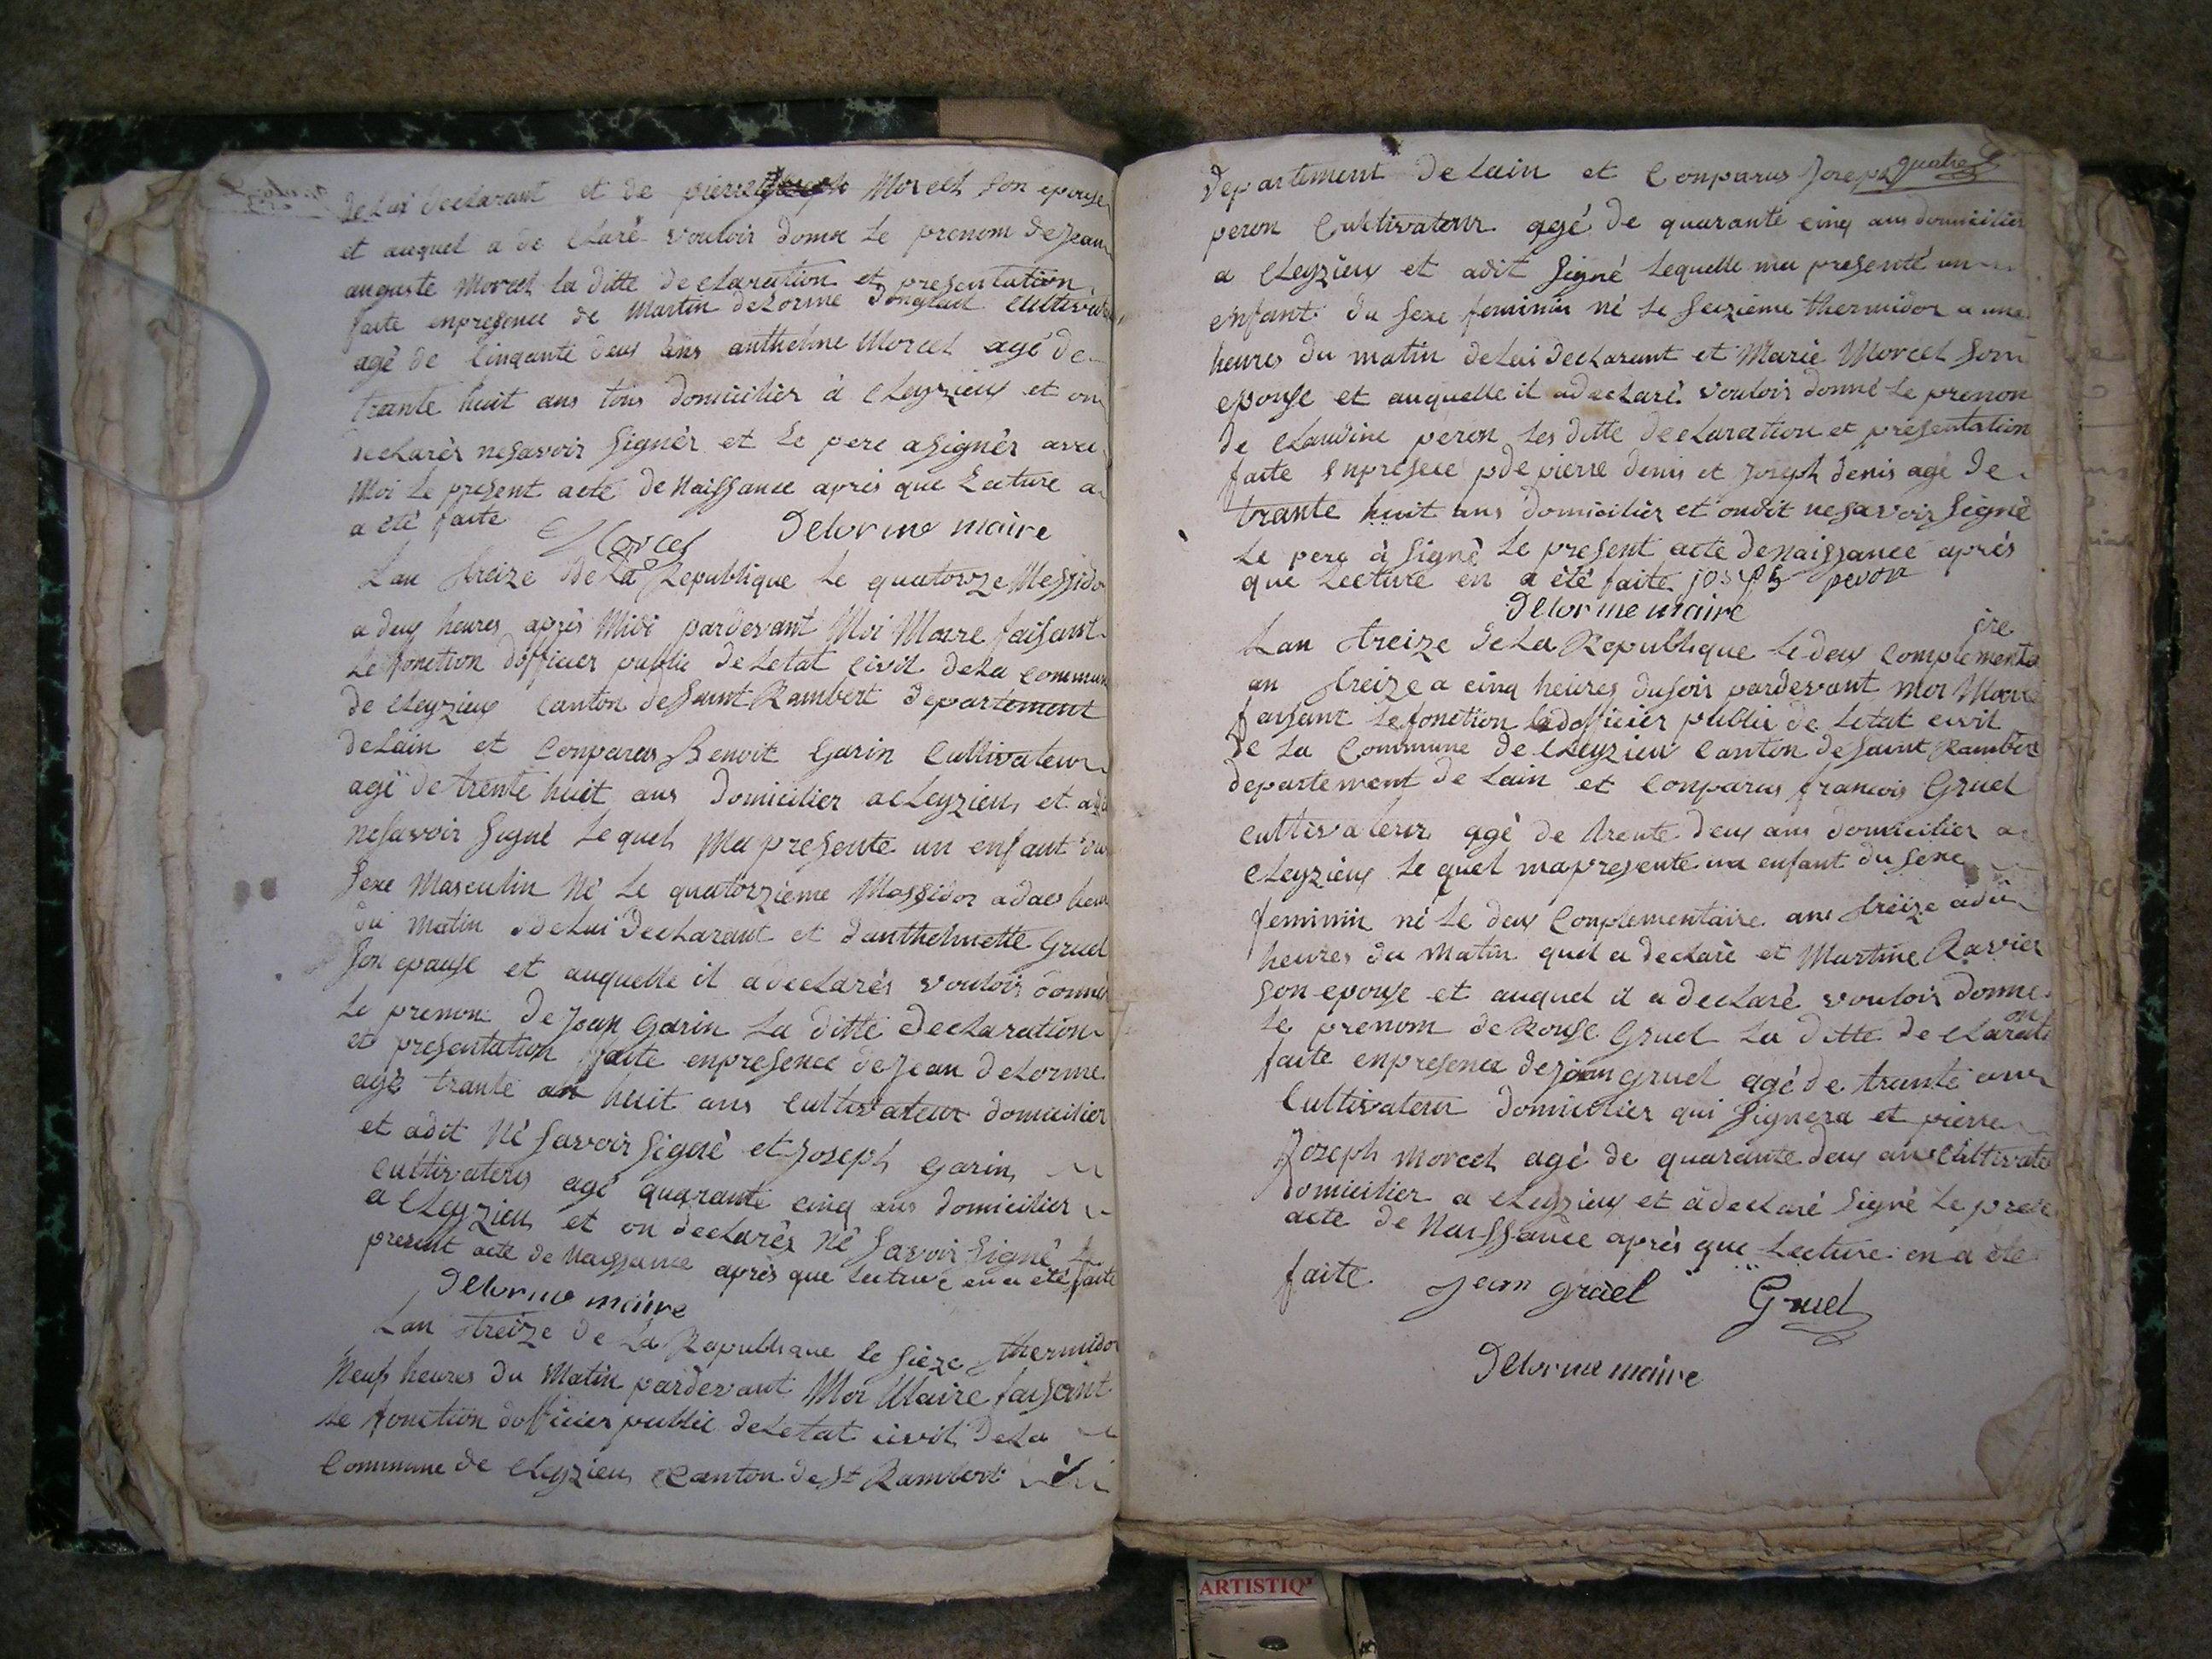 de Lui declarant et de pierre Morcel son epouse
et auquel a de claré vouloir donné Le prenom de Jean
auguste Morcel la ditte declaration et presentation
faite enpresence de Martin deLorme cultivate
agé de Cinqante deux ans anthelme Morcel agé de
trante huit ans tous domicilier à Cleyzieux et on
declarér nesavoir Signér et Le pere asignér avec
Moi Le present acte de Naissance aprés que Lecture a
a été faite Morcel Delorme maire
Lan treize de La Republique Le quatorze Messido
a deux heures aprés Midi pardevant Moi Maire faisant
Le fonction dofficier public de Letat Civil deLa Commune
de Cleyzieux Canton de Saint Rambert departement
deLain et Conparus Benoit Garin Cultivateur
agé de trente huit ans domicilier a Cleyzieux et adit
nesavoir Signé Lequel Ma presente un enfant du
Sexe Masculin Né Le quatorzieme Messidor a deux heur
du Matin de Lui declarant et danthelmette Gruel
Son epouse et auquelle il a declarés vouloir donné
Le prenom de Jean Garin La ditte declaration
et presentation faite enpresence de Jean deLorme
agé trante huit ans Cultivateur domicilier
et adit Né Savoir Signé et Joseph Garin
Cultivateur agé quarante cinq ans domicilier
a Cleyzieux et on declarés Né Savoir Signé Le
present acte de Naissance aprés que Lecture en a été faite
Delorme maire
Lan treize de La Republique le Sieze thermidor
Neuf heures du Matin pardevant Moi Maire faisant
Le fonction dofficier public de Letat civil deLa
Commune de Cleyzieu Canton de St Rambert
quatre
departement de Lain et Conparus Joseph
peron Cultivateur agé de quarante cinq ans domicilier
a Cleyzieux et adit Signé Lequelle ma presenté un
enfant du Sexe feminin né Le Seizieme thermidor a une
heures du matin deLui declarant et Marie Morcel Son
epouse et auquelle il adeclaré vouloir donné Le prenon
de Claudine peron Les ditte declaration et presentation
faite enpresece de pierre denis et Joseph denis agé de
trante huit ans domicilier et ondit nesavoir Signé
Le pere à Signé Le present acte deNaissance aprés
que Lecture en a été faite joseph peron
Delorme maire
Lan treize deLa Republique Le deux complementa ire
an treize a cinq heures dusoir pardevant moi Maire
faisant Le fonction dofficier public de Letat civil
de La Commune de Cleyzieu Canton de Saint Rambert
departement de Lain et Conparus francois Gruel
cultivateur agé de trente deux ans domicilier a
Cleyzieux Le quel mapresenté un enfant du Sexe
feminin né Le deux Complementaire an treize a
heures du Matin quil a declaré et Martine Ravier
Son epouse et auquel il a declaré vouloir donne
Le prenom de Rouse Gruel La ditte declarati on
faite enpresence de jean Gruel agé de trante
Cultivateur domicilier qui Signera et pierre
Joseph Morcel agé de quarante deux ans Cultivate
domicilier a Cleyzieux et a declaré Signé Le prese
acte de Naissance aprés que Lecture en a été
faite Jean gruel Gruel
Delorme maire
ARTISTIQ